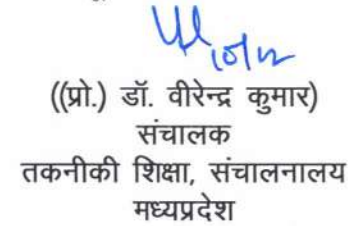 10/12
((प्रो.) डॉ. वीरेन्द्र कुमार)
संचालक
तकनीकी शिक्षा, संचालनालय
मध्यप्रदेश